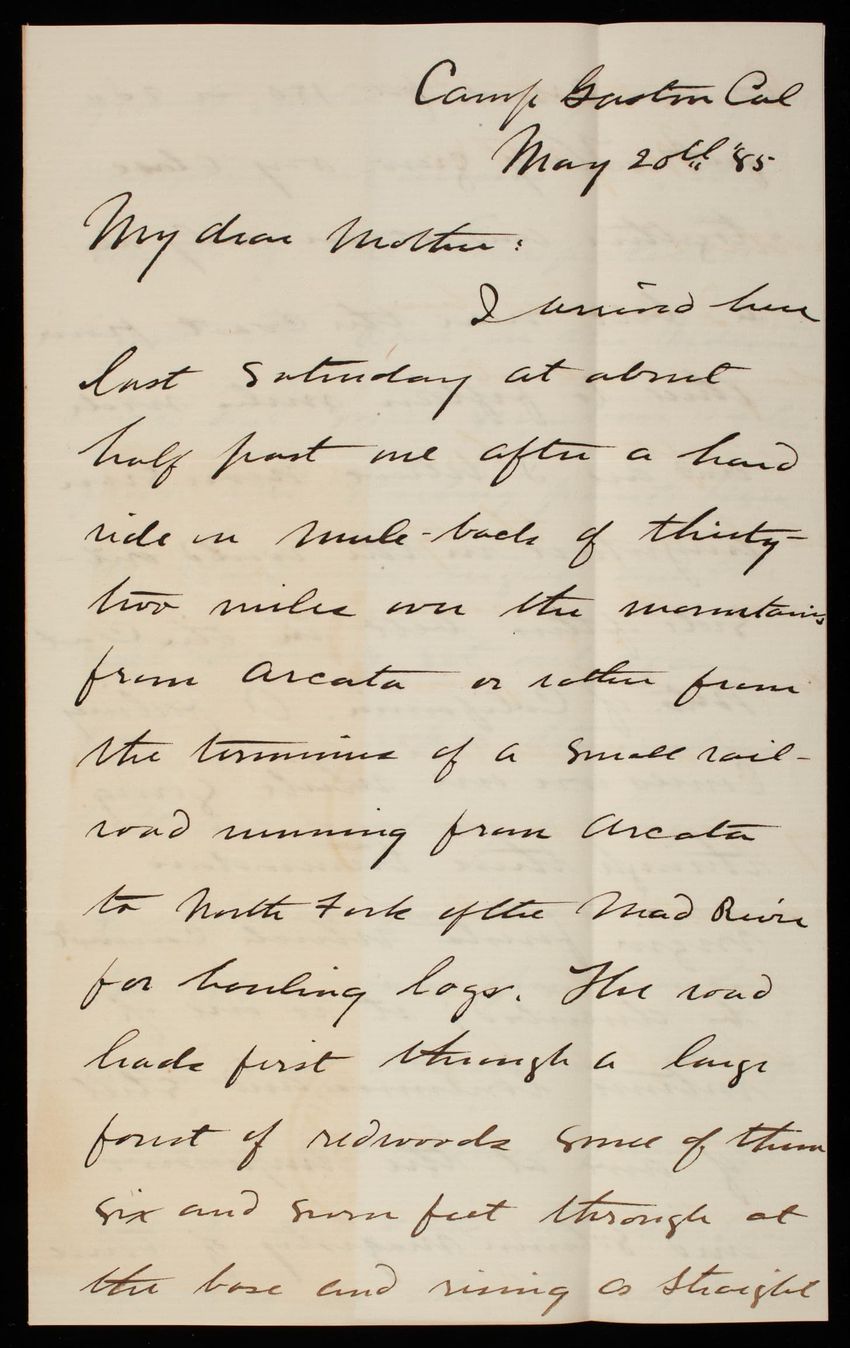 Camp Gaston Cal
May 20th "85
My dear Mother:
I arrived here
last Saturday at about
half past one after a hard
ride on mule-back of thirty-
two miles over the mountains
from Arcata or rather from
the terminus of a small rail-
road running from Arcata
to North Fork of the Mad River
for hauling logs. The road
leads first through a large
forest of redwoods some of them
six and seven feet through at
the base and rising as straight